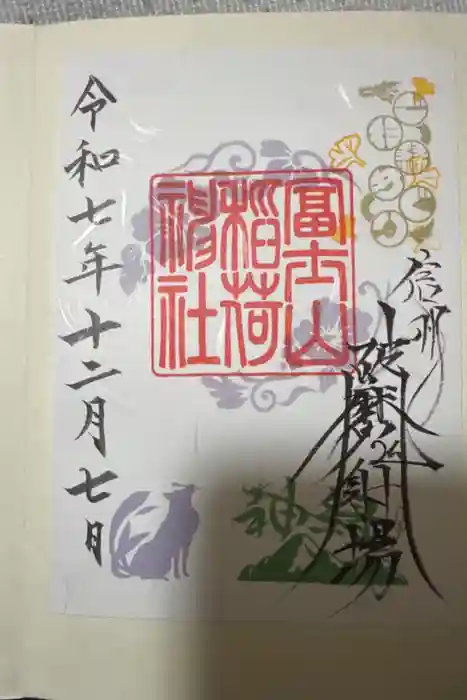 信州
破魔射場
冨士山
稲荷
神社
神
令和七年十二月七日